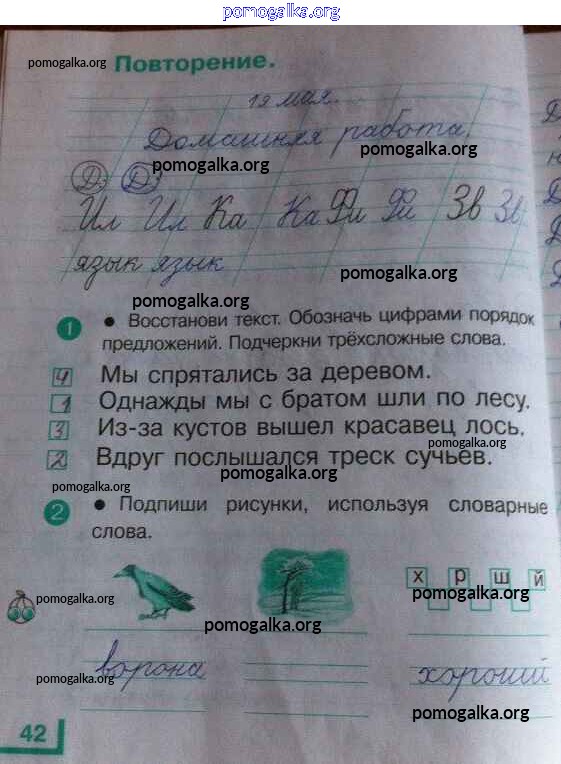 pomogalka.org
pomogalka.org Повторение.
19 мая.
Домашняя работа.
pomogalka.org pomogalka.org
Ил Ил Ка Ка Фи Фи Зв Зв
язык язык
pomogalka.org
pomogalka.org
1 • Восстанови текст. Обозначь цифрами порядок
предложений. Подчеркни трёхсложные слова.
4 Мы спрятались за деревом.
1 Однажды мы с братом шли по лесу.
3 Из-за кустов вышел красавец лось.
2 Вдруг послышался треск сучьев.
pomogalka.org
pomogalka.org
pomogalka.org
2 • Подпиши рисунки, используя словарные
слова.
х р ш й
pomogalka.org pomogalka.org
pomogalka.org
ворона хороший
pomogalka.org
pomogalka.org
42